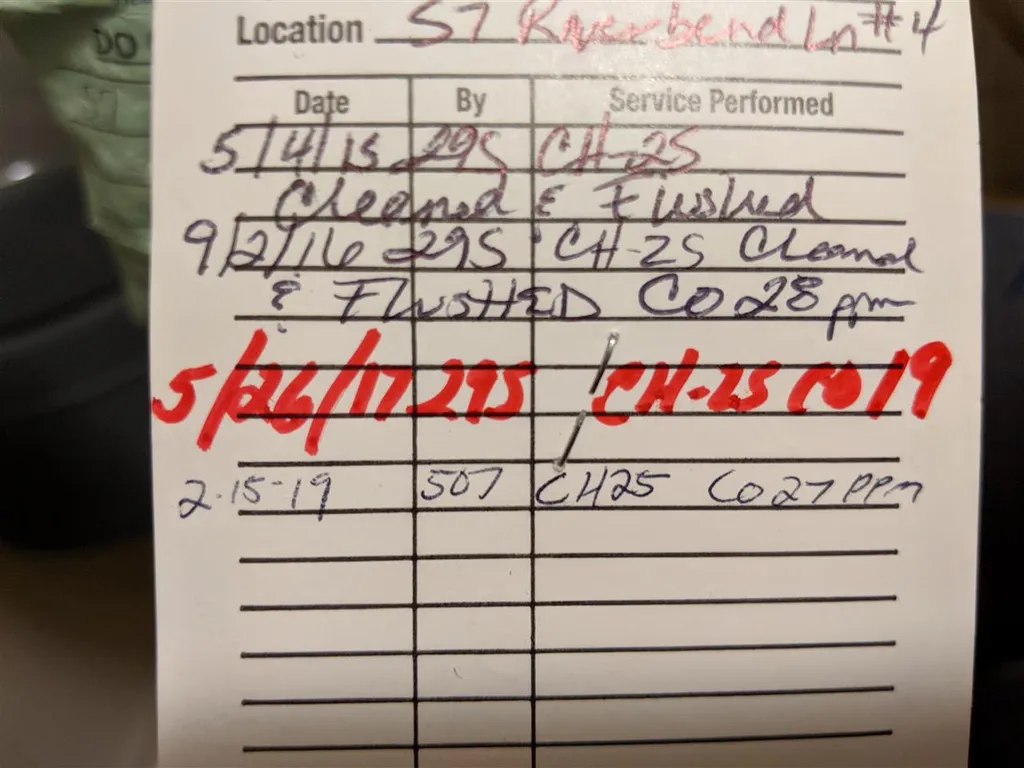 Location 57 Riverbend Ln #4
Date By Service Performed
5/4/15 295 CH-25
Cleaned & Flushed
9/2/16 295 CH-25 Cleaned
& FLUSHED CO 28 ppm
5/26/17 295 CH-25 CO 19
2-15-19 507 CH25 CO 27 PPM
DO
57